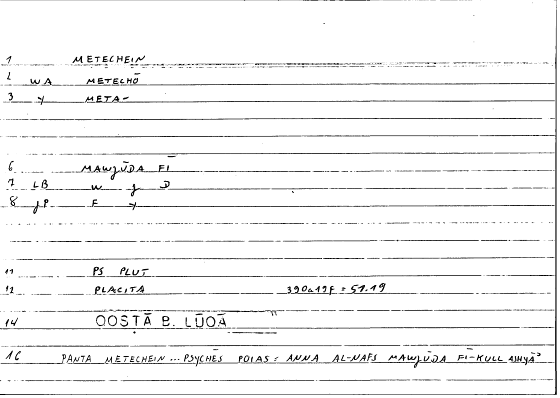 1 METECHEIN
2 WA METECHŌ
3 Y META-
6 MAWJŪDA FĪ
7 LB W J D
8 JP F Y
11 PS PLUT
12 PLACITA 390a19f = 51.19
14 QOSṬĀ B. LŪQĀ
16 PANTA METECHEIN ... PSYCHĒS POIAS: ANNA AL-NAFS MAWJŪDA FĪ-KULL ASHYĀʾ